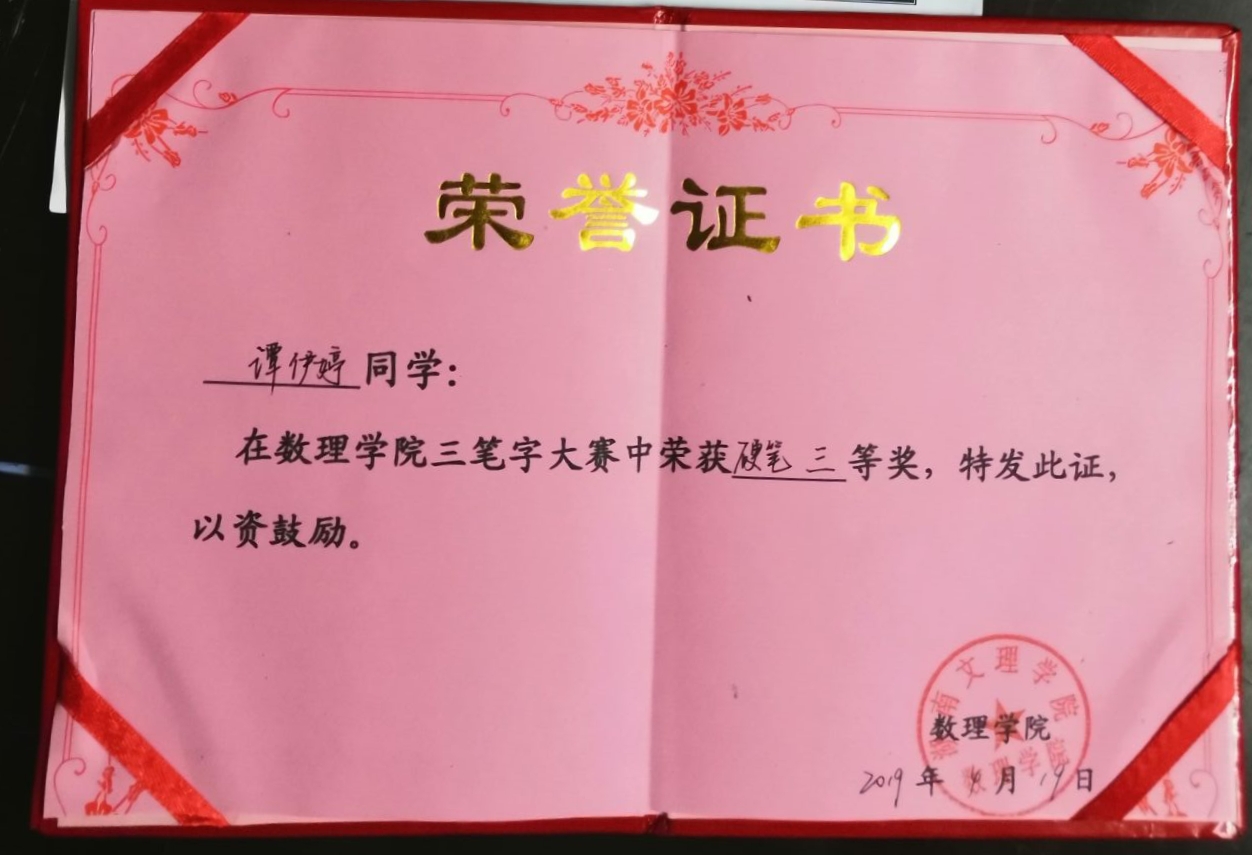 荣誉证书
谭伊婷同学:
在数理学院三笔字大赛中荣获硬笔 三等奖,特发此证,
以资鼓励。
湖南文理学院
数理学院
数理学院
2019年 月19日